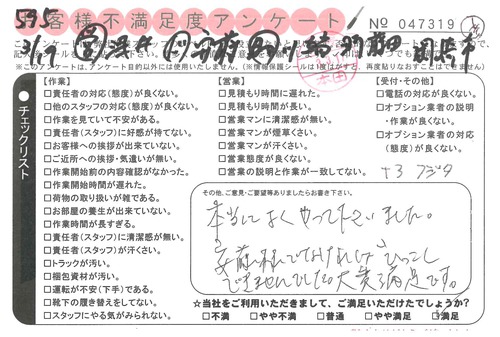 595
お客様不満足度アンケート
No 047319
チェックリスト
【作業】
□責任者の対応(態度)が良くない。
□他のスタッフの対応(態度)が良くない。
□作業を見ていて不安がある。
□責任者(スタッフ)に好感が持てない。
□お客様への挨拶が出来ていない。
□ご近所への挨拶・気遣いが無い。
□作業開始前の内容確認がなかった。
□作業開始時間が遅れた。
□荷物の取り扱いが雑である。
□お部屋の養生が出来ていない。
□作業時間が長すぎる。
□責任者(スタッフ)に清潔感が無い。
□責任者(スタッフ)が汗くさい。
□トラックが汚い。
□梱包資材が汚い。
□運転が不安(下手)である。
□靴下の履き替えをしてない。
□スタッフにやる気がみられない。
【営業】
□見積もり時間に遅れた。
□見積もり時間が長い。
□営業マンに清潔感が無い。
□営業マンが煙草くさい。
□営業マンが汗くさい。
□営業態度が良くない。
□営業の説明と作業が一致してない。
【受付・その他】
□電話の対応が良くない。
□オプション業者の説明
・作業が良くない。
□オプション業者の対応
(態度)が良くない。
その他、ご意見・ご要望等ありましたらお書き下さい。
本当によくやって下さいました。
安藤様でなければひっこし
できませんでした。大変満足です。
☆当社をご利用いただきまして、ご満足いただけたでしょうか?
□不満 □やや不満 □普通 □やや満足 □満足